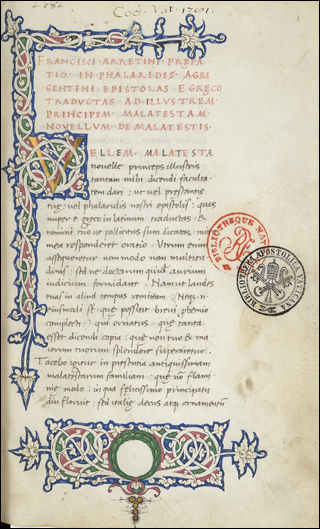 2782
Cod. Vat. 1791.
FRANCISCI ARRETINI PREFA
TIO IN PHALARIDIS AGRI
GENTINI EPISTOLAS E GRECO
TRADUCTAS AD ILLUSTREM
PRINCIPEM MALATESTAM
NOVELLUM DE MALATESTIS.
VELLEM MALATESTA
novelle princeps illustris
tantam mihi dicendi faculta
tem dari: ut vel prestantie
tue: vel phalaridis nostri epistolis: quas
nuper e greco in latinum traductas: &
nomini tuo ut pollicitus sum dicatas: mi
mea responderet oratio. Utrum enim
assequerer: non modo non multitu
dinis: sed ne doctorum quidem aurium
iudicium formidarem. Nam ut laudes
tuas in aliud tempus remittam:
eiusmodi sunt que possent brevi phemio
complecti: qui ornatus: que tanta
esset dicendi copia: que non tuo & ma
iorum tuorum splendore superaretur.
Tacebo igitur in presentia antiquissimam
malatestarum familiam: que non
modo: in qua felicissimo principatu
diu floruit: sed italie decus atque ornamentum
BIBLIOTHEQUE NAT
BIBLIOTECA APOSTOLICA VATICANA